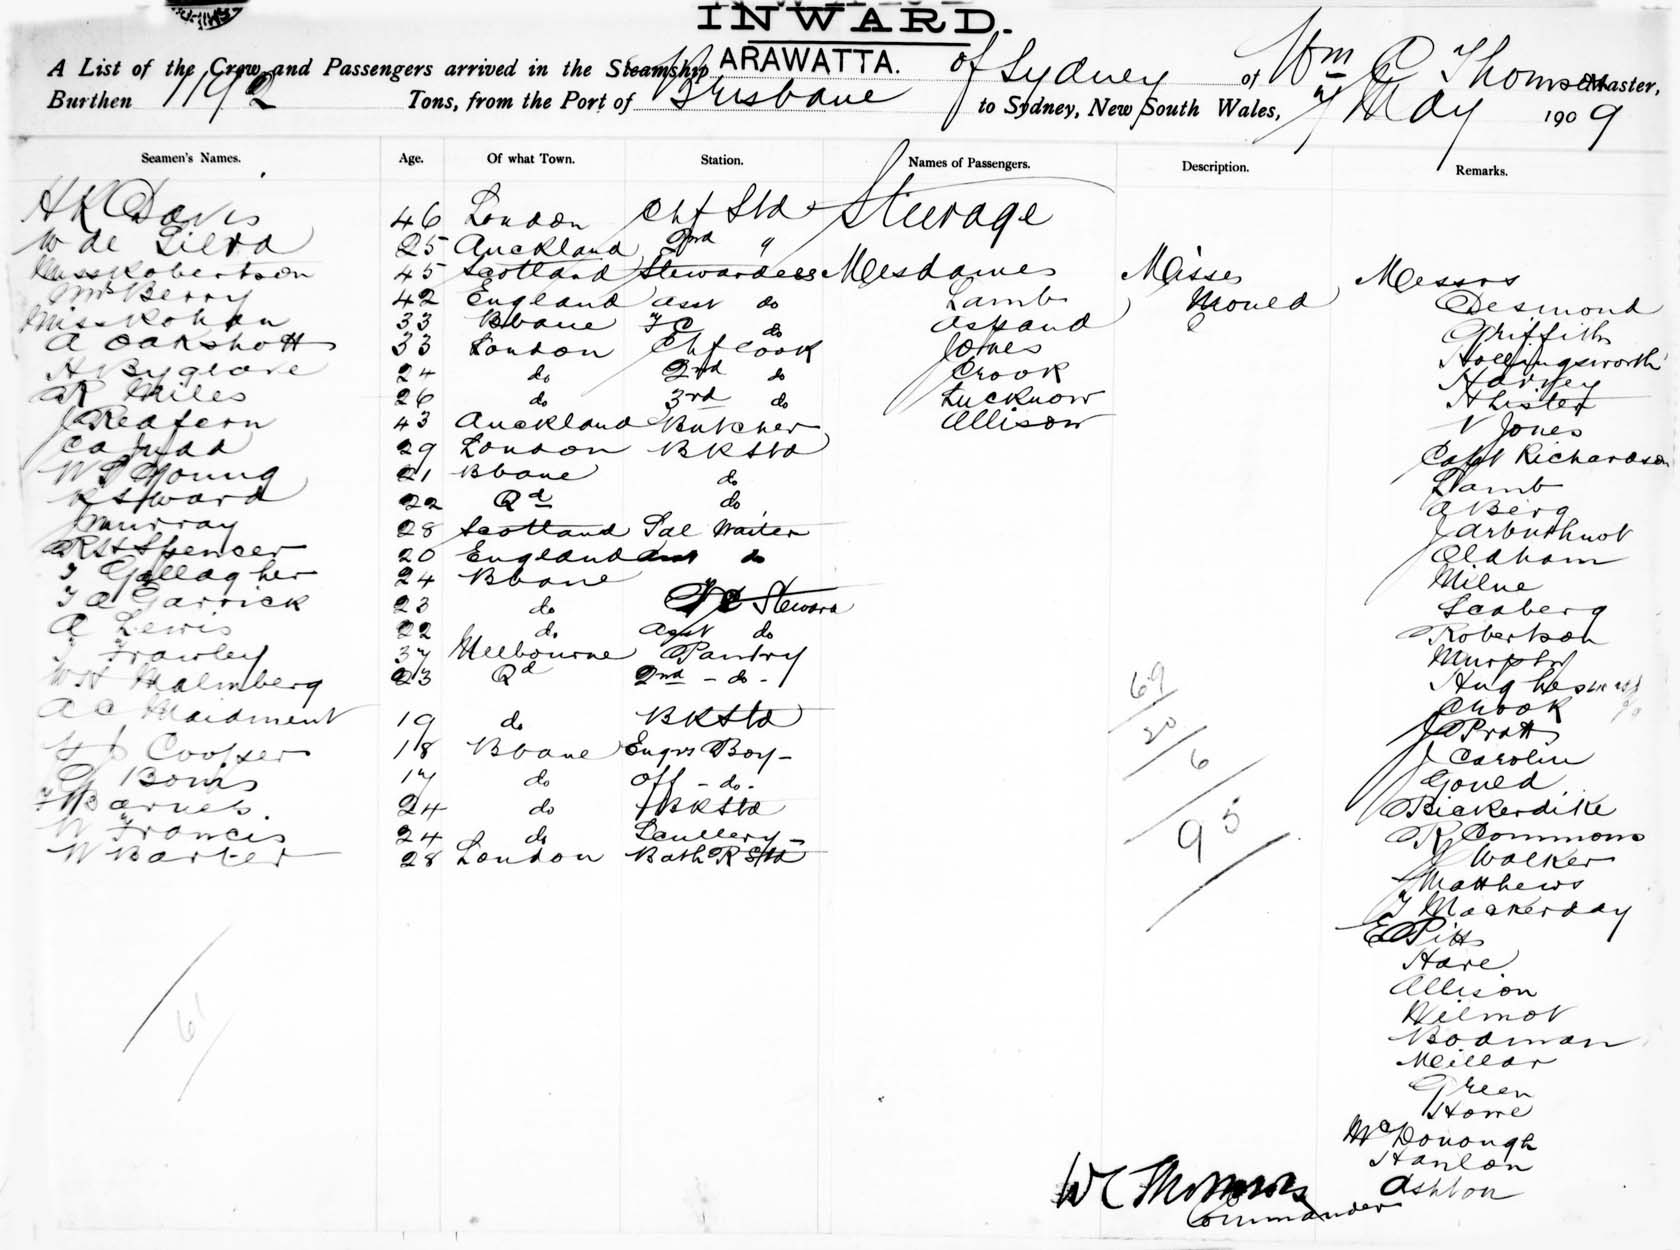 INWARD.
A List of the Crew and Passengers arrived in the Steamship ARAWATTA. of Sydney of Wm C Thomson Master,
Burthen 1192 Tons, from the Port of Brisbane to Sydney, New South Wales, 7 May 1909
Seamen's Names. Age. Of what Town. Station. Names of Passengers. Description. Remarks.
H K Davis 46 London Chf Std Steerage
W de Silva 25 Auckland 2nd "
Miss Robertson 45 Scotland Stewardess Mesdames Misses Messrs
Mrs Berry 42 England asst do Lamb Mould Desmond
Miss Rohan 33 Bbane do Aspand Griffith
A Oakshott 33 London Chf Cook Jones Hollingsworth
H Byglave 24 do 2nd do Crook Harvey
R Miles 26 do 3rd do Lucknow A Lister
J Redfern 43 Auckland Butcher Allison V Jones
C A Judd 29 London BKStd Capt Richardson
W S Young 21 Bbane do Lamb
R S Ward 22 Qd do A Berg
J Murray 28 Scotland Sal Waiter J Arbuthnot
R H Spencer 20 England do Oldham
T Gallagher 24 Bbane Milne
T A Garrick 23 do Steward Seaberg
A Lewis 22 do asst do Robertson
T Frawley 37 Melbourne Pantry Murphy
W H Malmberg 23 Qd 2nd - do - Hughes
A C Maidment 19 do BKStd Crook
J Pratt
G J Cooper 18 Bbane Engrs Boy - J Carolin
G Bowis 17 do Off - do - Gould
T Barnes. 24 do BKStd Bickerdike
W Francis 24 do Scullery - R Commons
W Barter 28 London Bath R Std J Walker
Matthews
T Mackerday
E Pitts
Hare
Allison
Wilmot
Bodman
Millar
Green
Howe
McDonough
Hanlon
Ashton
69
20
6
95
61
W C Thomson
Commander